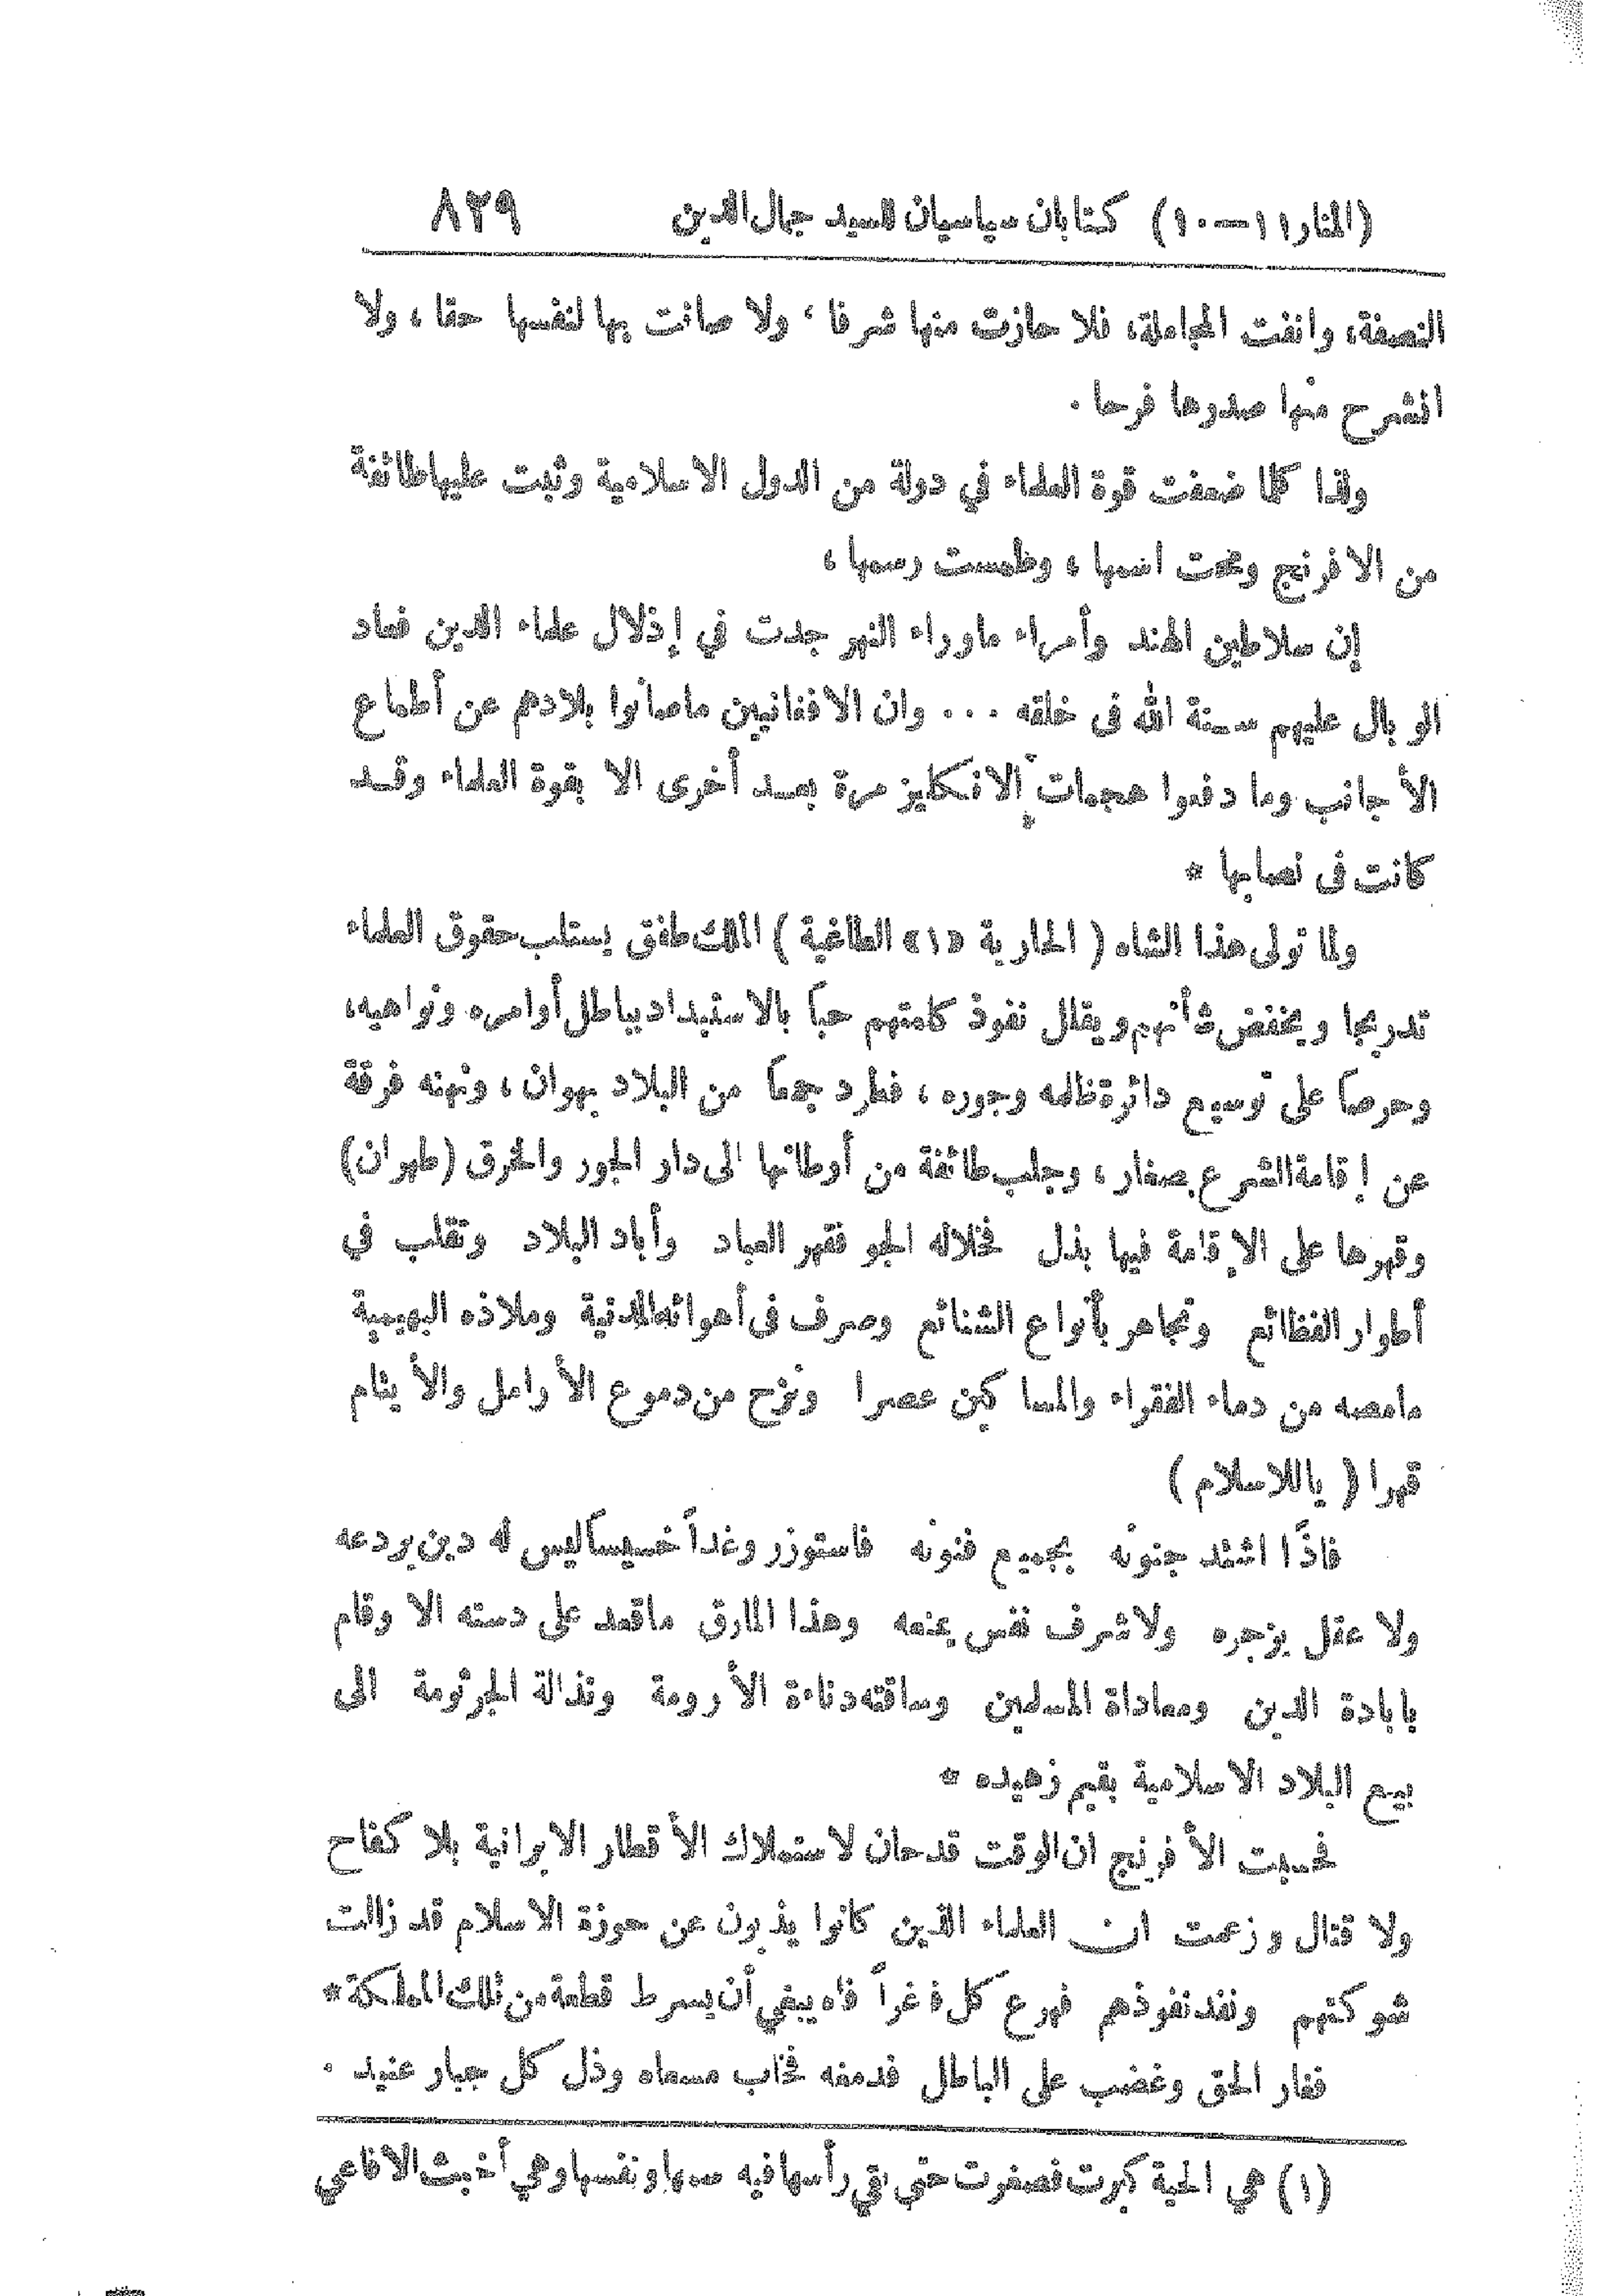 (المنار ١١ — ١٠) كتابان سياسيان للسيد جمال الدين ٨٣٩
النصفة، وانفت المجاملة، فلا حازت منها شرفا، ولا صانت بها لنفسها حقا، ولا
انشرح منها صدورها فرحا.
ولذا كلما ضعفت قوة العلماء في دولة من الدول الاسلامية وثبت عليها طائفة
من الافرنج ومحت اسمها، وطمست رسمها،
إن سلاطين الهند وأمراء ماوراء النهر جدت في إذلال علماء الدين فعاد
الوبال عليهم سنة الله في خلقه ... وان الافغانيين ماصانوا بلادهم عن أطماع
الأجانب وما دفعوا هجمات الانكليز مرة بعد أخرى الا بقوة العلماء وقد
كانت في نصابها *
ولما تولى هذا الشاه (الحارية «١» الطاغية) الملك طفق يستلب حقوق العلماء
تدريجا ويخفض شأنهم ويقلل نفوذ كلمتهم حباً بالاستبداد بباطل أوامره ونواهيه،
وحرصاً على توسيع دائرة ظلمه وجوره، فطرد جمعاً من البلاد بهوان، ونهنه فرقة
عن إقامة الشرع بصغار، وجلب طائفة من أوطانها الى دار الجور والخرق (طهران)
وقهرها على الإقامة فيها بذل فخلاله الجو فقهر العباد وأباد البلاد وتقلب في
أطوار الفظائع وتجاهر بأنواع الشنائع وصرف في أهوائه الدنية وملاذه البهيمية
مامصه من دماء الفقراء والمساكين عصرا ونزح من دموع الأرامل والأيتام
قهرا (ياللاسلام)
فاذا اشتد جنونه بجميع فنونه فاستوزر وغداً خسيساً ليس له دين يردعه
ولا عقل يزجره ولا شرف نفس يمنعه وهذا المارق ماقعد على دسته الا وقام
بابادة الدين ومعاداة المسلمين وساقته دناءة الأرومة ونذالة الجرثومة الى
بيع البلاد الاسلامية بقيم زهيده *
فحسبت الأفرنج ان الوقت قد حان لاستملاك الأقطار الايرانية بلا كفاح
ولا قتال وزعمت ان العلماء الذين كانوا يذبون عن حوزة الاسلام قد زالت
شوكتهم ونفد نفوذهم فهرع كل فاغراً فاه يبغي أن يسرط قطعة من تلك المملكة *
فغار الحق وغضب على الباطل فدمغه فخاب مسعاه وذل كل جبار عنيد.
(١) هي الحية كبرت فصغرت حتى بقي رأسها فيه سمها ونفسها وهي أخبث الافاعي